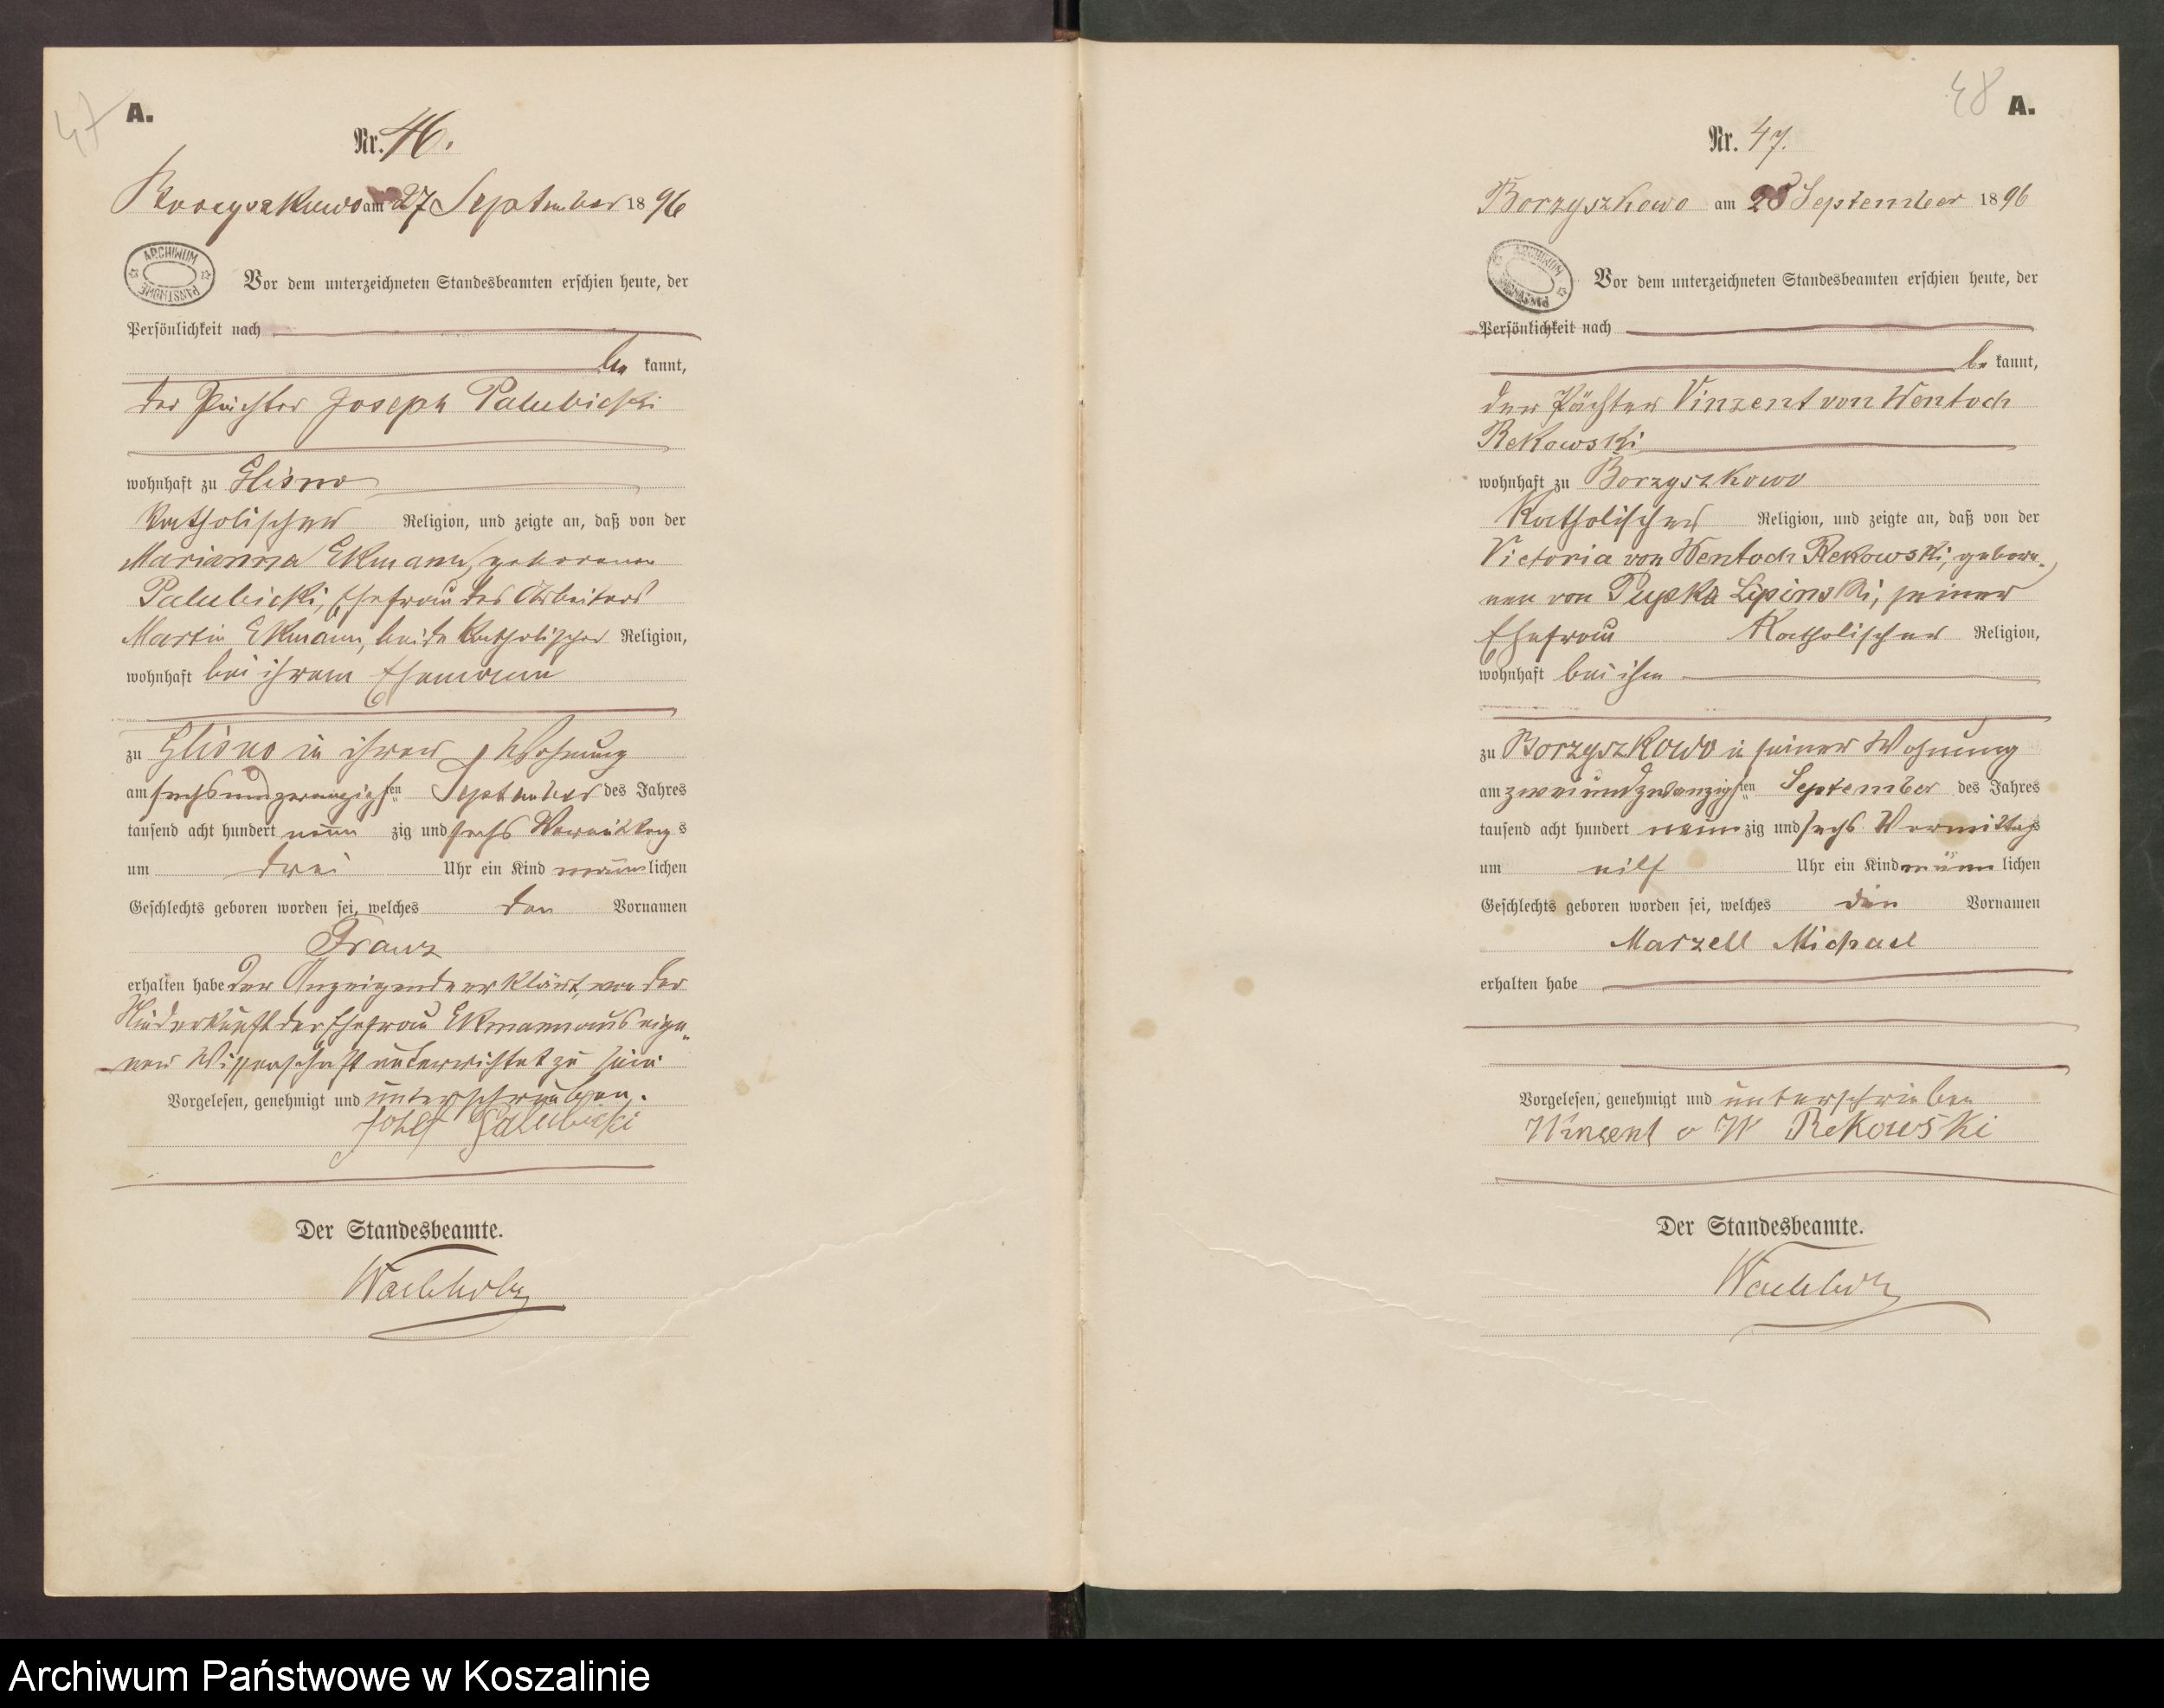 47
A.
Nr. 46.
Borzyszkowo am 27 September 1896
ARCHIWUM PAŃSTWOWE
Vor dem unterzeichneten Standesbeamten erschien heute, der
Persönlichkeit nach
be kannt,
der Pächter Joseph Palubicki
wohnhaft zu Glisno
katholischer Religion, und zeigte an, daß von der
Marianna Ekmann, geborenen
Palubicki, Ehefrau des Arbeiters
Martin Ekmann, beide katholischer Religion,
wohnhaft bei ihrem Ehemanne
zu Glisno in ihrer Wohnung
am sechsundzwanzigsten September des Jahres
tausend acht hundert neun zig und sechs Vormittags
um drei Uhr ein Kind männlichen
Geschlechts geboren worden sei, welches den Vornamen
Franz
erhalten habe Der Anzeigende erklärt, von der
Niederkunft der Ehefrau Ekmann aus eige-
ner Wissenschaft unterrichtet zu sein
Vorgelesen, genehmigt und unterschrieben.
Josef Palubicki
Der Standesbeamte.
Wachholz
48
A.
Nr. 47.
Borzyszkowo am 28 September 1896
ARCHIWUM PAŃSTWOWE
Vor dem unterzeichneten Standesbeamten erschien heute, der
Persönlichkeit nach
be kannt,
der Pächter Vinzent von Wentoch
Rekowski
wohnhaft zu Borzyszkowo
katholischer Religion, und zeigte an, daß von der
Victoria von Wentoch Rekowski, gebore-
nen von Pupka Lipinski, seiner
Ehefrau katholischer Religion,
wohnhaft bei ihm
zu Borzyszkowo in seiner Wohnung
am zweiundzwanzigsten September des Jahres
tausend acht hundert neun zig und sechs Vormittags
um eilf Uhr ein Kind männ lichen
Geschlechts geboren worden sei, welches die Vornamen
Marzell Michael
erhalten habe
Vorgelesen, genehmigt und unterschrieben
Vincent v W Rekowski
Der Standesbeamte.
Wachholz
Archiwum Państwowe w Koszalinie